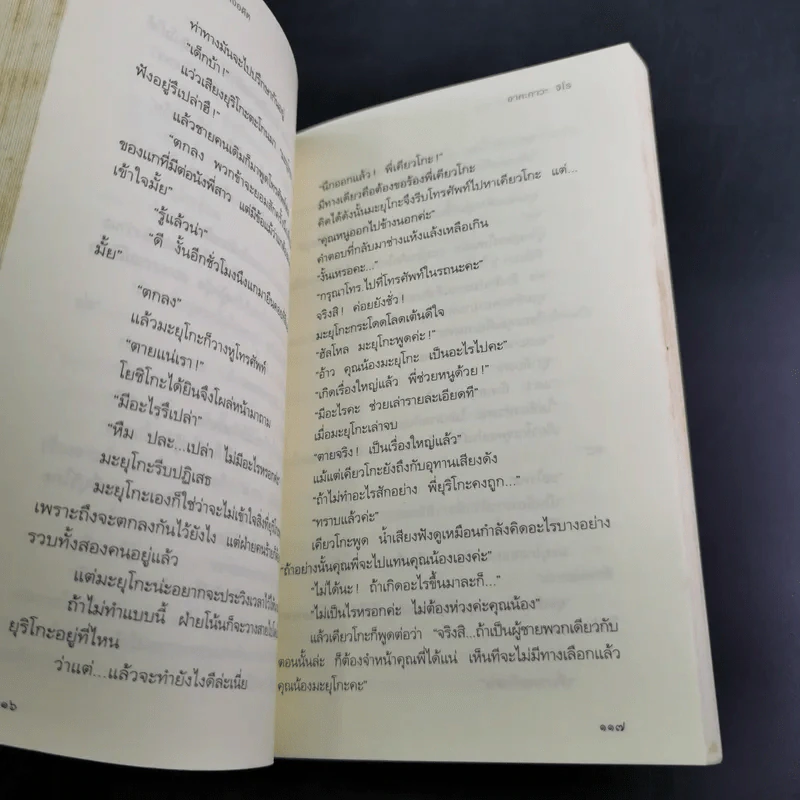 ท่าทางมันจะไปปรึกษากันอยู่
"เด็กบ้า!"
แว่วเสียงยุริโกะตะโกนมา
ฟังอยู่รึเปล่าฮึ!"
แล้วชายคนเดิมก็มาพูดโทรศัพท์
"ตกลง พวกข้าจะยอม
ของแกที่มีต่อนังพี่สาว แต่มีข้อแม้ว่า
เข้าใจมั้ย"
"รู้แล้วน่า"
"ดี งั้นอีกชั่วโมงนึงแกมายืน
มั้ย"
"ตกลง"
แล้วมะยุโกะก็วางหูโทรศัพท์
"ตายแน่เรา!"
โยชิโกะได้ยินจึงโผล่หน้ามาถาม
"มีอะไรรึเปล่า"
"หืม ปละ...เปล่า ไม่มีอะไรหรอกค่ะ
มะยุโกะรีบปฏิเสธ
มะยุโกะเองก็ใช่ว่าจะไม่เข้าใจสิ่งที่ยุริโกะ
เพราะถึงจะตกลงกันไว้ยังไง แต่ฝ่ายคนร้ายก็
รวบทั้งสองคนอยู่แล้ว
แต่มะยุโกะน่ะอยากจะประวิงเวลาไว้
ถ้าไม่ทำแบบนี้ ฝ่ายโน้นก็จะวางสาย
ยุริโกะอยู่ที่ไหน
ว่าแต่...แล้วจะทำยังไงดีล่ะเนี่ย
๑๖
อาคะกาวะ จิโร
"นึกออกแล้ว! พี่เคียวโกะ!"
มีทางเดียวคือต้องขอร้องพี่เคียวโกะ
คิดได้ดังนั้นมะยุโกะจึงรีบโทรศัพท์ไปหาเคียวโกะ แต่...
"คุณหนูออกไปข้างนอกค่ะ"
คำตอบที่กลับมาช่างแห้งแล้งเหลือเกิน
"งั้นเหรอคะ..."
"กรุณาโทร.ไปที่โทรศัพท์ในรถนะคะ"
จริงสิ! ค่อยยังชั่ว!
มะยุโกะกระโดดโลดเต้นดีใจ
"ฮัลโหล มะยุโกะพูดค่ะ!"
"อ้าว คุณน้องมะยุโกะ เป็นอะไรไปคะ"
"เกิดเรื่องใหญ่แล้ว พี่ช่วยหนูด้วย!"
"มีอะไรคะ ช่วยเล่ารายละเอียดที"
เมื่อมะยุโกะเล่าจบ
"ตายจริง! เป็นเรื่องใหญ่แล้ว"
แม้แต่เคียวโกะยังถึงกับอุทานเสียงดัง
"ถ้าไม่ทำอะไรสักอย่าง พี่ยุริโกะคงถูก..."
"ทราบแล้วค่ะ"
เคียวโกะพูด น้ำเสียงฟังดูเหมือนกำลังคิดอะไรบางอย่าง
"ถ้าอย่างนั้นคุณพี่จะไปแทนคุณน้องเองค่ะ"
"ไม่ได้นะ! ถ้าเกิดอะไรขึ้นมาละก็..."
"ไม่เป็นไรหรอกค่ะ ไม่ต้องห่วงค่ะคุณน้อง"
แล้วเคียวโกะก็พูดต่อว่า "จริงสิ...ถ้าเป็นผู้ชายพวกเดียวกับ
ตอนนั้นล่ะ ก็ต้องจำหน้าคุณพี่ได้แน่ เห็นทีจะไม่มีทางเลือกแล้ว
คุณน้องมะยุโกะคะ"
๑๑๗